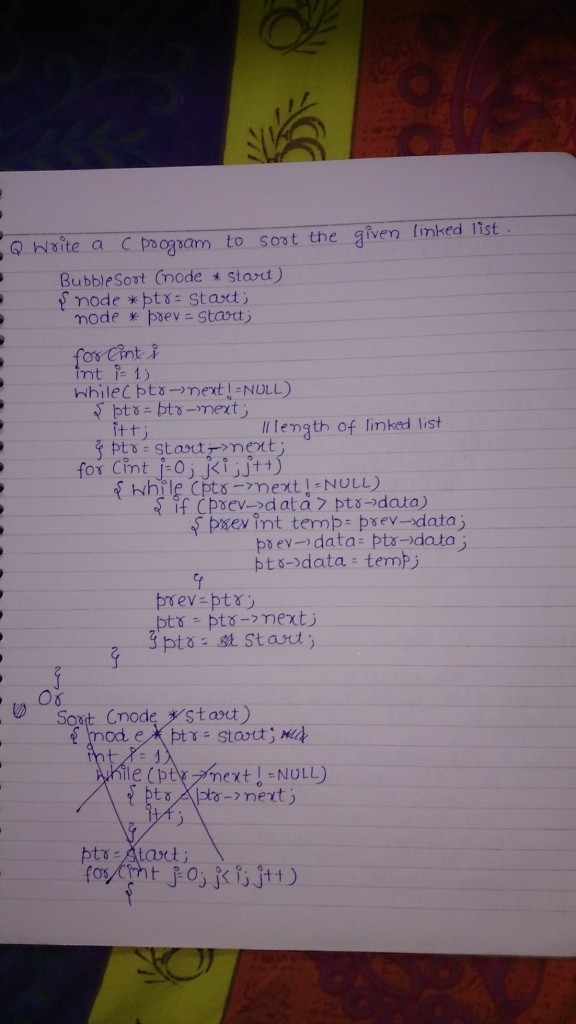 Q Write a C program to sort the given linked list.
BubbleSort (node * start)
{ node *ptr= start;
node * prev = start;
for (int i
int i= 1;
while( ptr->next!=NULL)
{ ptr= ptr->next;
i++; //length of linked list
} ptr= start->next;
for (int j=0; j<i; j++)
{ while (ptr->next!=NULL)
{ if (prev->data > ptr->data)
{ prev int temp= prev->data;
prev->data= ptr->data;
ptr->data = temp;
}
prev=ptr;
ptr = ptr->next;
} ptr= st start;
}
}
Or
Sort (node *start)
{ node * ptr= start;
int i= 1;
while (ptr->next!=NULL)
{ ptr = ptr->next;
i++;
}
ptr= start;
for (int j=0; j<i; j++)
{